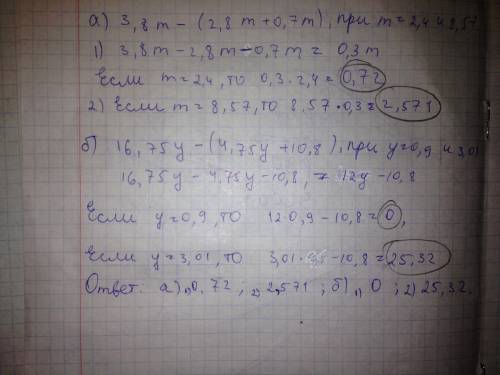 а) 3,8m - (2,8m+0,7m), при m=2,4 и 8,57
1) 3,8m-2,8m-0,7m = 0,3m
Если m=2,4, то 0,3·2,4=0,72
2) Если m=8,57, то 8,57·0,3=2,571
б) 16,75у-(4,75у+10,8), при у=0,9 и 3,01
16,75у-4,75у-10,8, = 12у-10,8
Если у=0,9, то 12·0,9-10,8=0,
Если у=3,01, то 3,01· -10,8=25,32
Ответ: а) 1) 0,72; 2) 2,571; б) 1) 0; 2) 25,32.